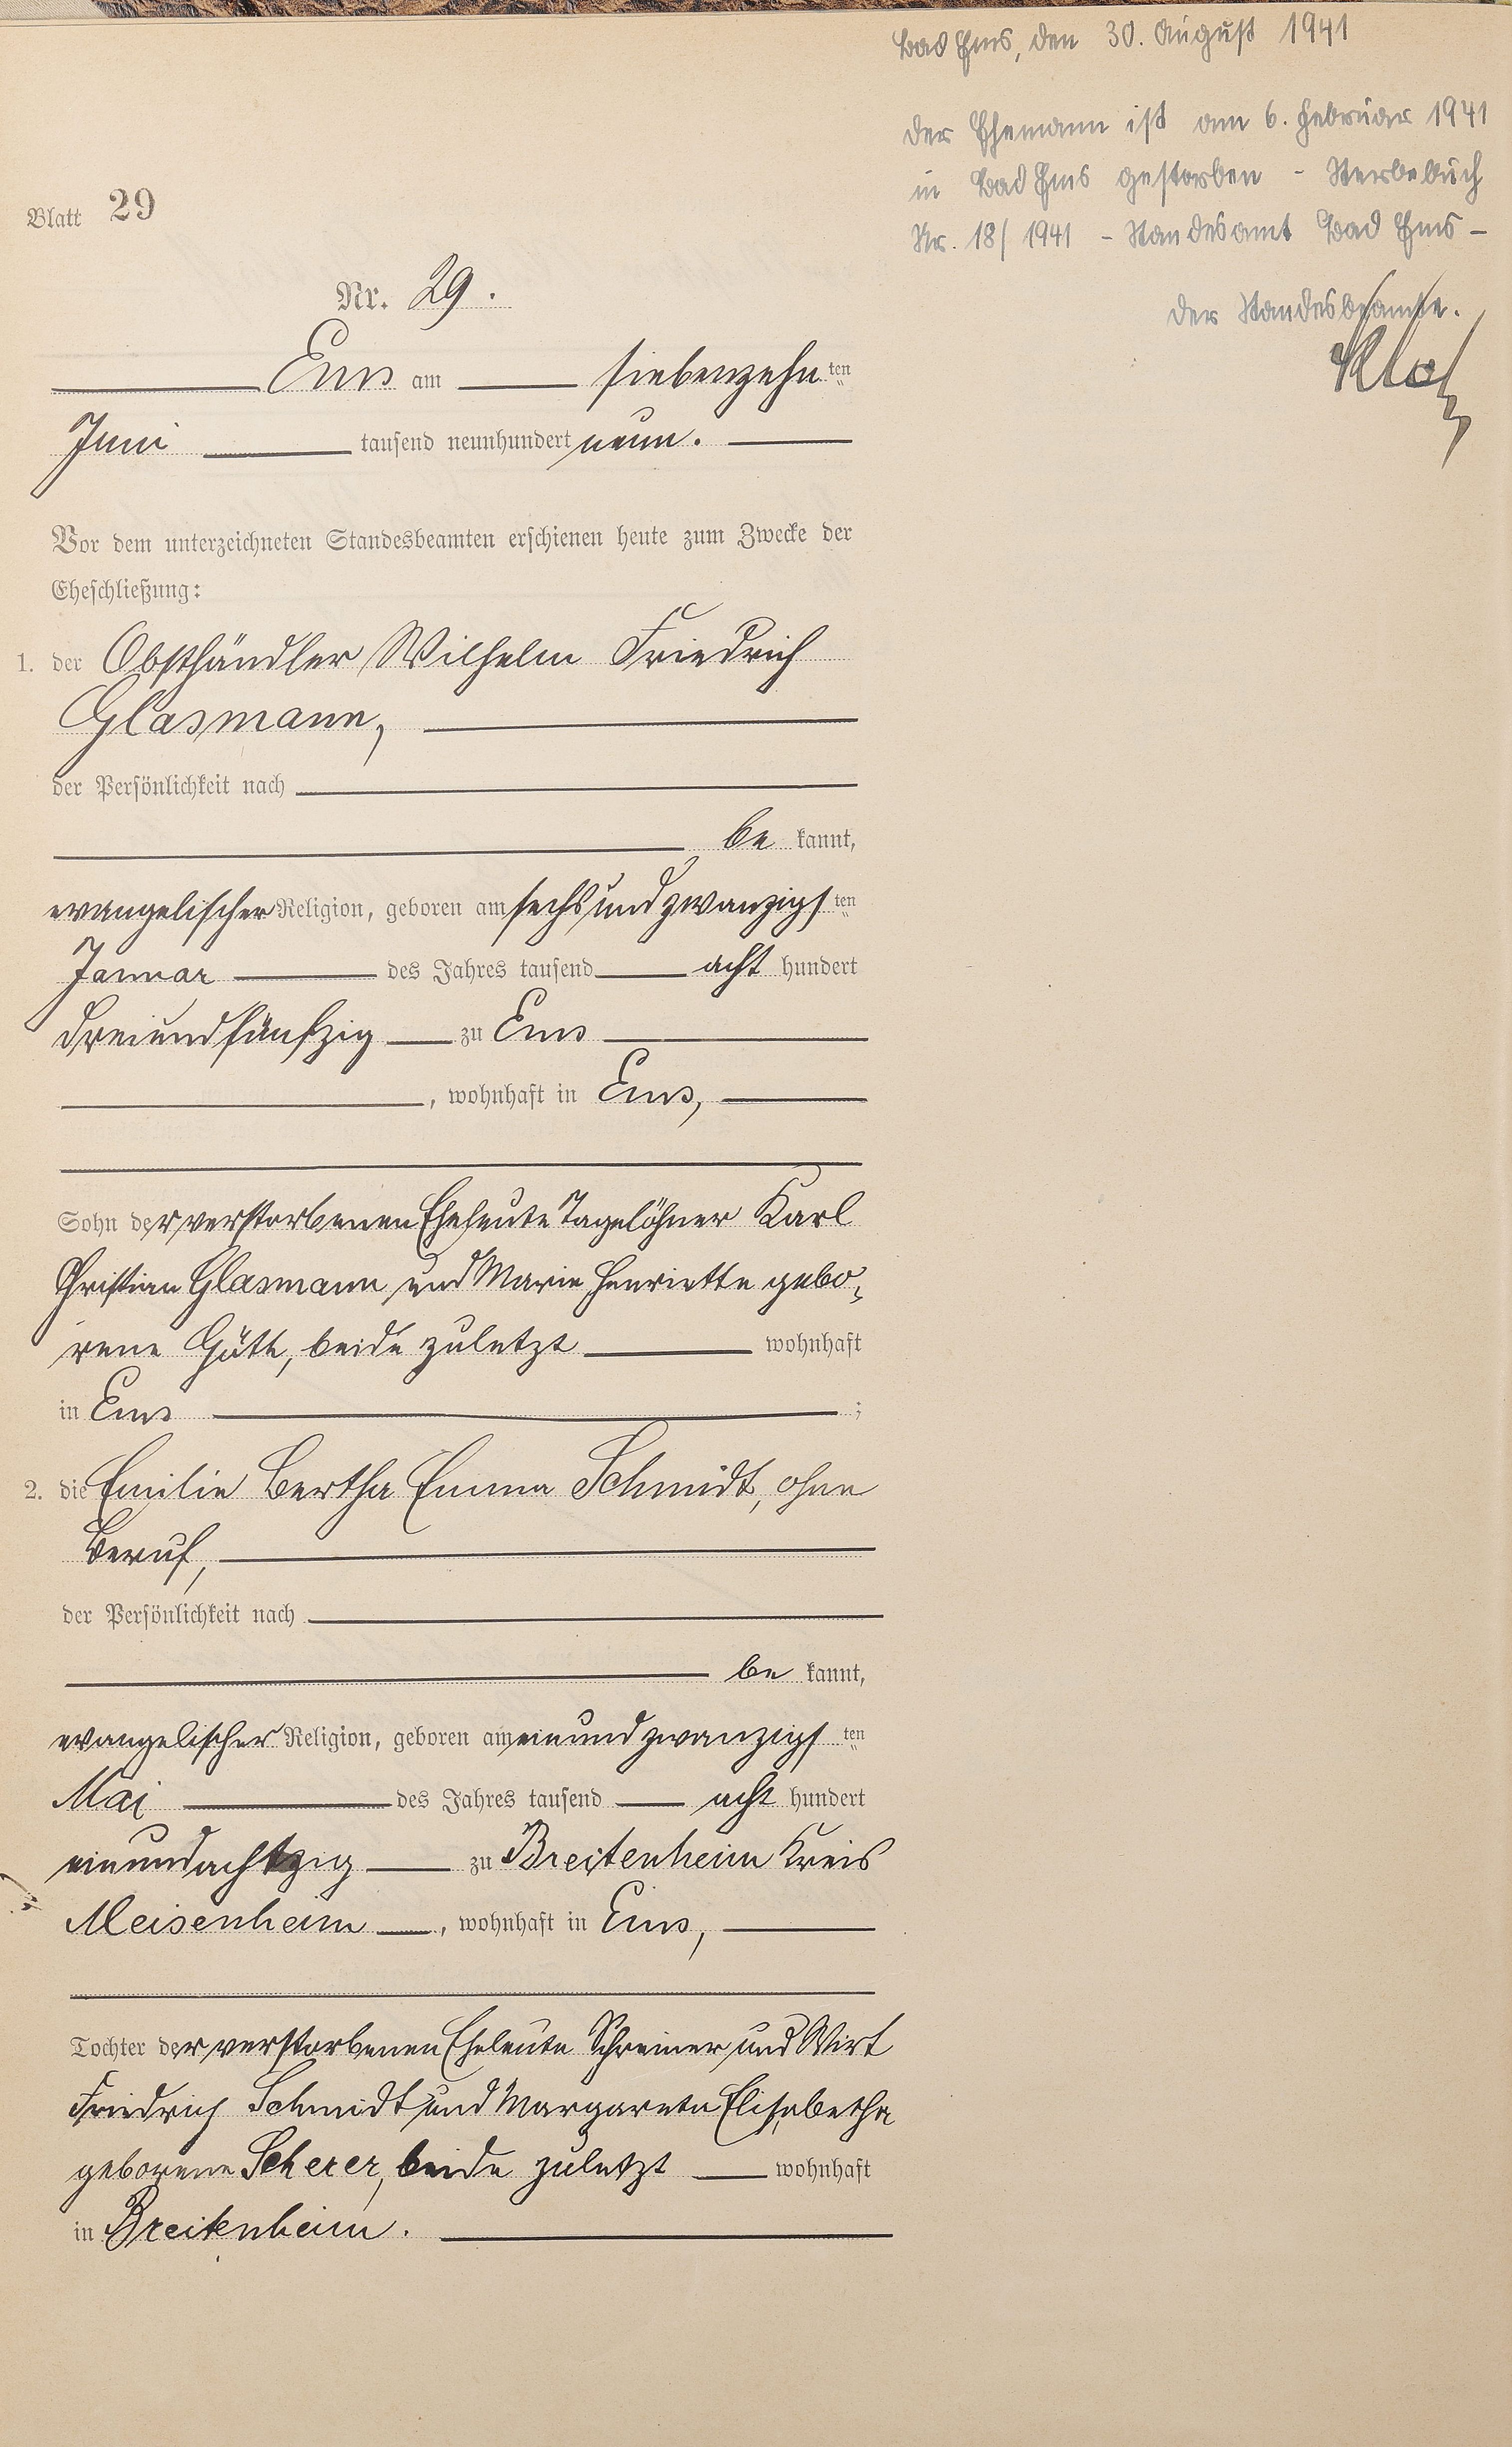 Bad Ems, den 30. August 1941
Der Ehemann ist am 6. Februar 1941
in Bad Ems gestorben - Sterbebuch
Nr. 18/1941 - Standesamt Bad Ems -
Der Standesbeamte.
Blatt 29
Nr. 29.
Ems am siebenzehnten
Juni tausend neunhundert neun.
Vor dem unterzeichneten Standesbeamten erschienen heute zum Zwecke der
Eheschließung:
1. der Obsthändler Wilhelm Friedrich
Glasmann,
der Persönlichkeit nach
be kannt,
evangelischer Religion, geboren am sechsundzwanzigsten
Januar des Jahres tausend acht hundert
dreiundfünfzig zu Ems
, wohnhaft in Ems,
Sohn der verstorbenen Eheleute Tagelöhner Karl
Christian Glasmann und Marie Henriette gebo-
rene Güth, beide zuletzt wohnhaft
in Ems ;
2. die Emilie Bertha Emma Schmidt, ohne
Beruf,
der Persönlichkeit nach
be kannt,
evangelischer Religion, geboren am einundzwanzigsten
Mai des Jahres tausend acht hundert
einundachtzig zu Breitenheim Kreis
Meisenheim , wohnhaft in Ems,
Tochter der verstorbenen Eheleute Schreiner und Wirt
Friedrich Schmidt und Margareta Elisabetha
geborene Scherer, beide zuletzt wohnhaft
in Breitenheim.